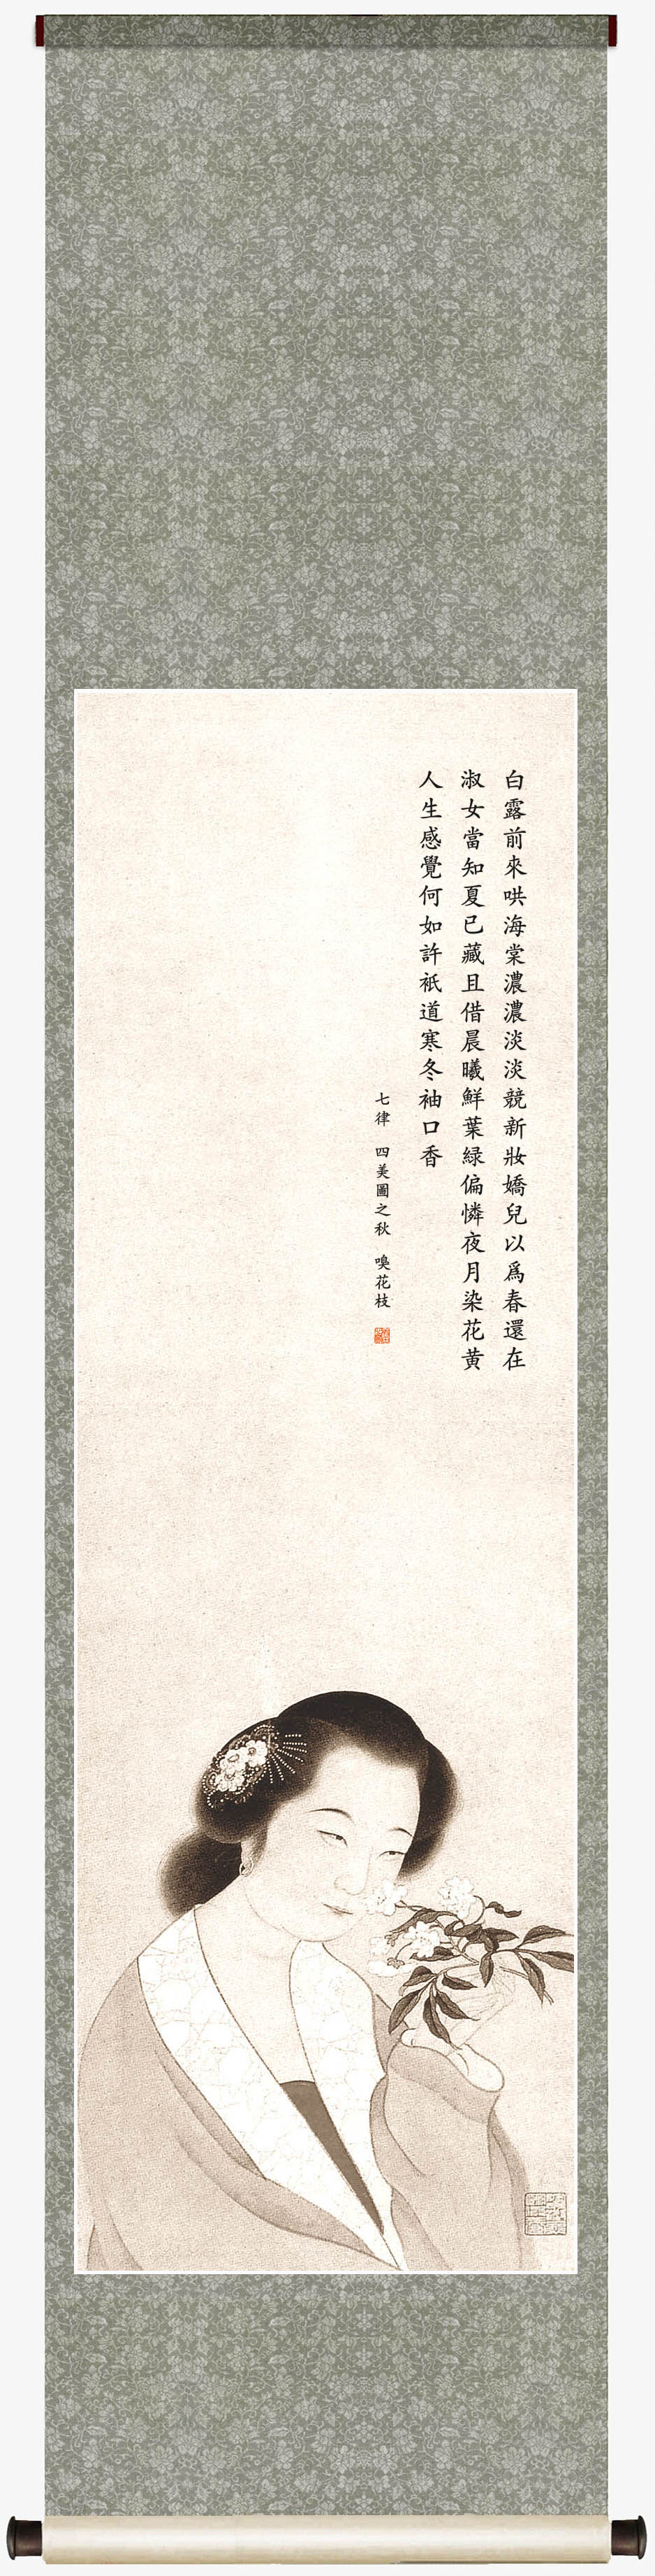 白露前來哄海棠濃濃淡淡競新妝嬌兒以爲春還在
淑女當知夏已藏且借晨曦鮮葉緑偏憐夜月染花黄
人生感覺何如許祇道寒冬袖口香
七律 四美圖之秋 嗅花枝